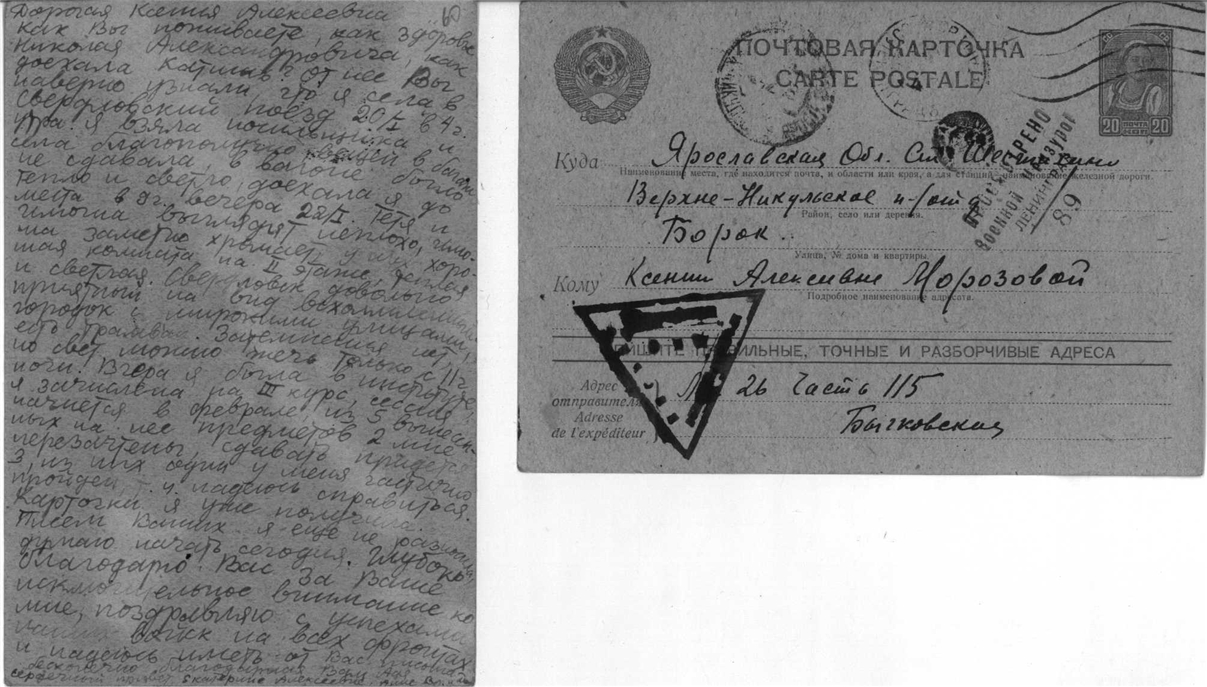 Дорогая Ксения Алексеевна
как Вы поживаете как здоровье
Николая Александровича, как
доехала от нее Вы
наверно узнали, что я села в
Свердловский поезд 20/I в 4 ч.
утра. Я взяла носильщика и
села благополучно вещей в багаж
не сдавала, в вагоне было
тепло и светло, доехала я до
места в 9 ч. вечера 22/I. Тетя и
выглядят неплохо,
заметно хромает у них хоро-
шая комната на II этаже теплая
и светлая. Свердловск довольно
приятный на вид
городок с широкими улицами,
есть трамвай. Затемнения нет,
но свет можно жечь только с 11 ч.
ночи. Вчера я была в институте,
я зачислена на III курс, сессия
начнется в феврале, из 5
ных на нее предметов 2 мне
перезачтены, сдавать придется
3, из них один у меня частично
пройден т. ч. надеюсь справиться.
Карточки я уже получила.
Писем Ваших я еще не
думаю начать сегодня. Глубоко
благодарю Вас за Ваше
исключительное внимание ко
мне, поздравляю с успехами
наших войск на всех фронтах
и надеюсь иметь от Вас
бесконечно благодарная Вам
сердечный привет Екатерине Алексеевне
ПОЧТОВАЯ КАРТОЧКА
CARTE POSTALE
20 ПОЧТА 20
ПРОСМОТРЕНО
Военной Цензурой
ЛЕНИНГРАД
89
Куда Ярославская Обл. Ст. Шестихино
Наименование места, где находится почта, и области или края, а для станций наименование железной дороги.
Верхне-Никульское п/отд
Район, село или деревня.
Борок.
Улица, № дома и квартиры.
Кому Ксении Алексеевне Морозовой
Подробное наименование адресата.
ПИШИТЕ ПРАВИЛЬНЫЕ, ТОЧНЫЕ И РАЗБОРЧИВЫЕ АДРЕСА
Адрес отправителя
Adresse de l'expéditeur
26 Часть 115
Бычковская